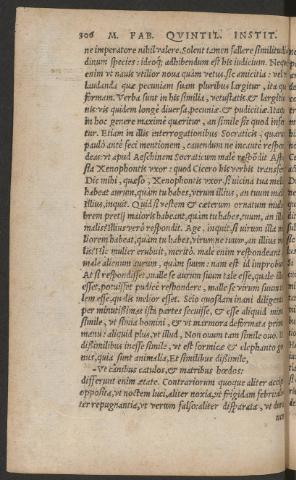 306 M. FAB. QVINTIL. INSTIT.
ne imperatore nihil valere. Solent tamen fallere similitudi
dinum species: ideoq; adhibendum est his iudicium. Neq;
enim vt nauis vtilior noua quàm vetus, sic amicitia: vel
laudanda quæ pecuniam suam pluribus largitur, ita quæ
formam. Verba sunt in his similia, vetustatis & largitio
nis: vis quidem longè diuersa, pecuniæ & pudicitiæ. Itaq;
in hoc genere maximè quæritur, an simile sit quod infer
tur. Etiam in illis interrogationibus Socraticis, quarum
paulò antè feci mentionem, cauendum ne incautè respon
deas: vt apud Aeschinem Socraticum malè respōdit Aspa
sia Xenophontis vxor: quod Cicero his verbis transfert
Dic mihi, quæso, Xenophontis vxor, si vicina tua melius
habeat aurum, quàm tu habes, vtrum illius, an tuum malis?
illius, inquit. Quid si vestem & cæterum ornatum mulie
brem pretij maioris habeat, quàm tu habes, tuum, an illius
malis? Illius verò respondit. Age, inquit, si virum illa me
liorem habeat, quàm tu habes, virum ne tuum, an illius ma
lis? Hic mulier erubuit, meritò. malè enim responderat, se
malle alienum aurum, quàm suum: nam est id improbum.
At si respondisset, malle se aurum suum tale esse, quale illud
esset, potuisset pudicè respondere, malle se virum suum ta
lem esse, qualis melior esset. Scio quosdam inani diligentia
per minutissimas ista partes secuisse, & esse aliquid minus
simile, vt simia homini, & vt marmora deformata prima
manu: aliquid plus, vt illud, Non ouum tam simile ouo. Et
dissimilibus inesse simile, vt est formicæ & elephanto ge
nus, quia sunt animalia. Et similibus dissimile,
-Vt canibus catulos, & matribus hœdos:
differunt enim ætate. Contrariorum quoque aliter accip
opposita, vt noctem luci, aliter noxia, vt frigidam febri, ali
ter repugnantia, vt verum falso: aliter disparata, vt dura